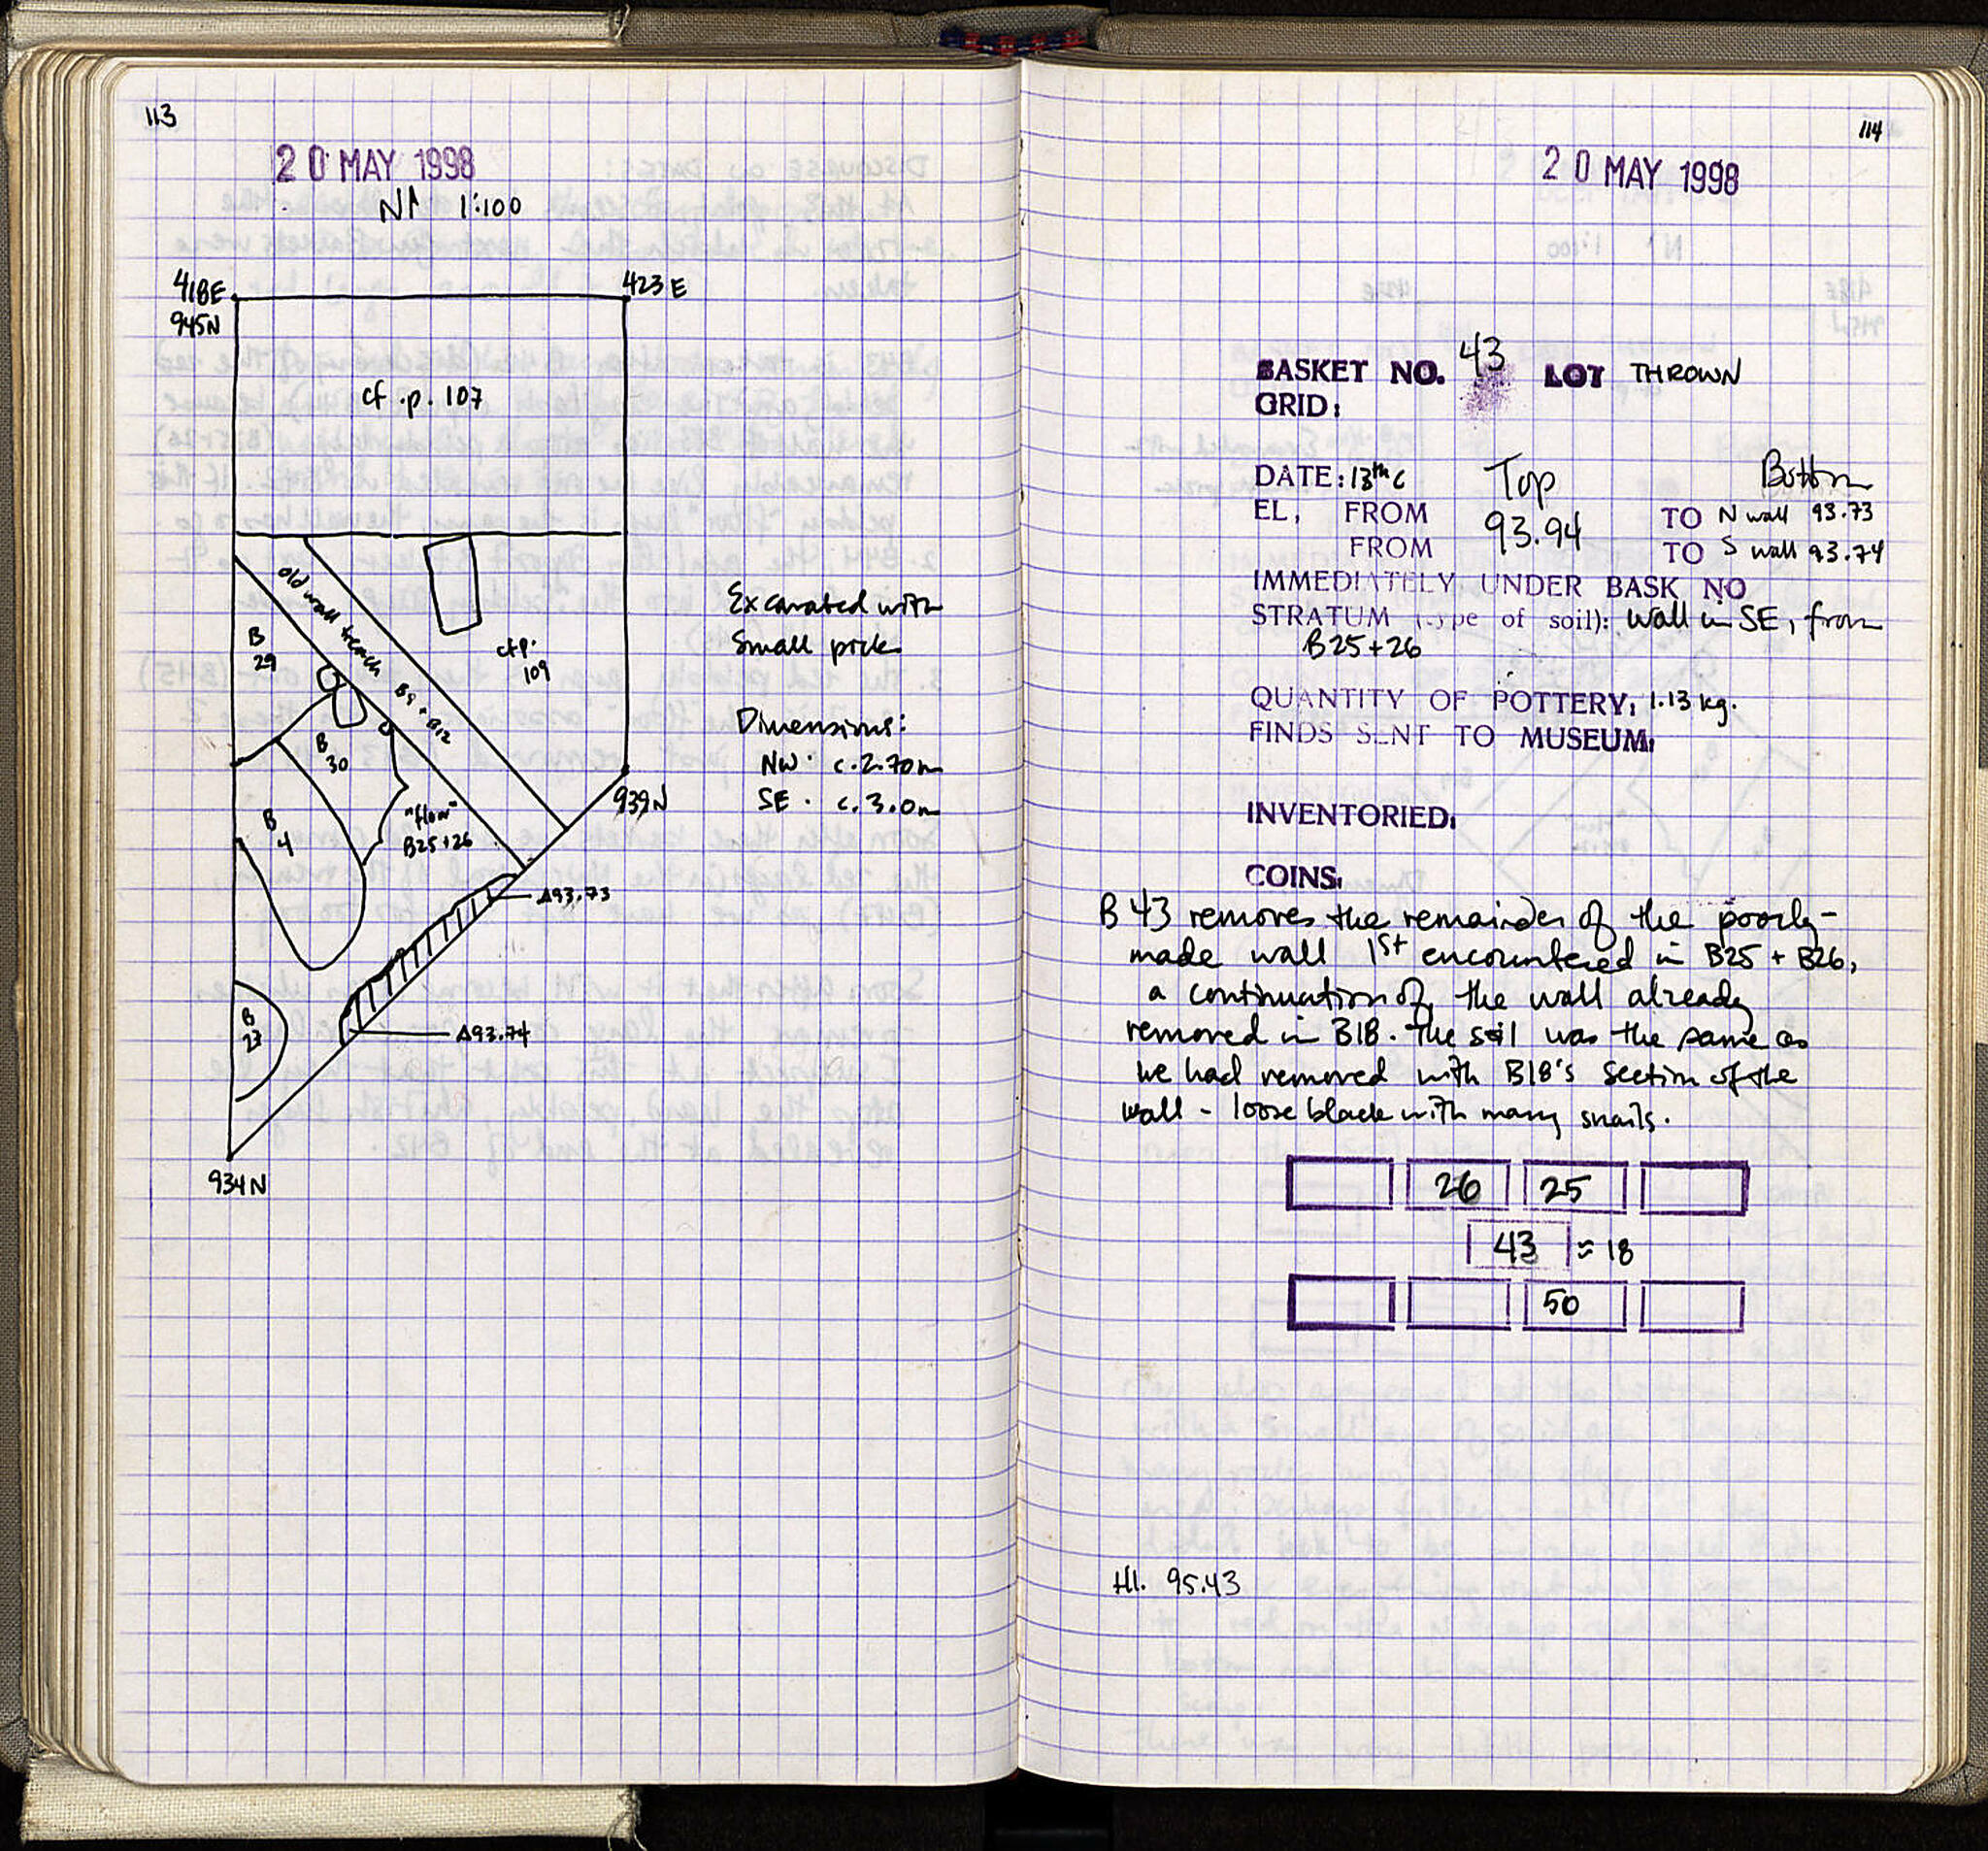 113
20 MAY 1998
N↑ 1:100
418E
423 E
945N
cf. p. 107
old wall trench B9 + B12
B
29
cf p.
109
Excavated with
small pick
B
30
Dimensions:
NW: c. 2.70m
SE: c. 3.0m
939N
B
4
"floor"
B25+26
Δ93.73
B
23
Δ93.74
934N
114
20 MAY 1998
BASKET NO. 43 LOT THROWN
GRID:
DATE: 13th c Top Bottom
EL, FROM 93.94 TO N wall 93.73
FROM TO S wall 93.74
IMMEDIATELY UNDER BASK NO
STRATUM (type of soil): wall in SE, from
B25+26
QUANTITY OF POTTERY: 1.13 kg.
FINDS SENT TO MUSEUM:
INVENTORIED:
COINS:
B 43 removes the remainder of the poorly-
made wall 1st encountered in B25 + B26,
a continuation of the wall already
removed in B18. The soil was the same as
we had removed with B18's section of the
wall - loose black with many snails.
26 25
43 ≈ 18
50
HI. 95.43